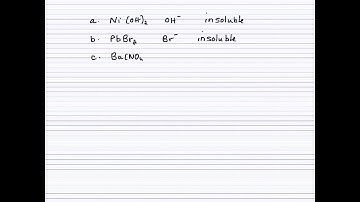 a. Ni(OH)₂ OH⁻ insoluble
b. PbBr₂ Br⁻ insoluble
c. Ba(NO₃